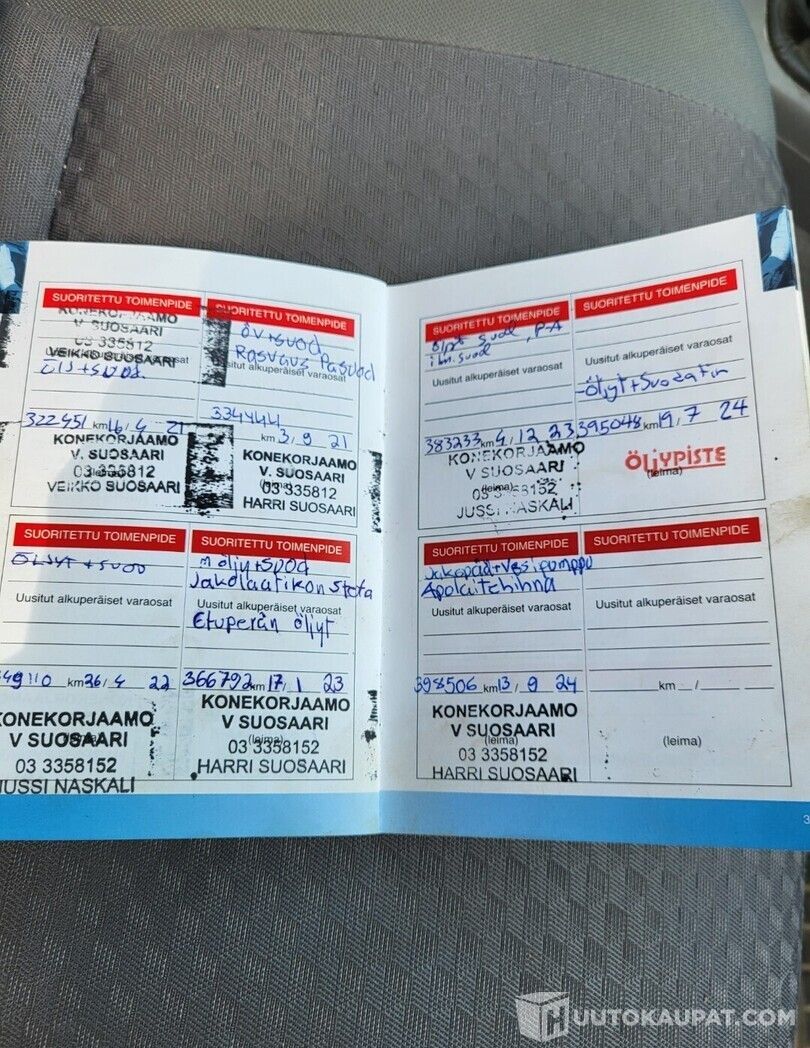 SUORITETTU TOIMENPIDE
KONEKORJAAMO
V SUOSAARI
03 335812
VEIKKO SUOSAARI
Uusitut alkuperäiset varaosat
ÖLJ+SUOD.
322451 km 16/4 21
KONEKORJAAMO
V. SUOSAARI
03 335812
(leima)
VEIKKO SUOSAARI
SUORITETTU TOIMENPIDE
ÖV+suod
Rasvaus Pasuod
Uusitut alkuperäiset varaosat
334444
km 3/9 21
KONEKORJAAMO
V. SUOSAARI
03 335812
(leima)
HARRI SUOSAARI
SUORITETTU TOIMENPIDE
ÖLJYT + SUOD
Uusitut alkuperäiset varaosat
49110 km 26/4 22
KONEKORJAAMO
V SUOSAARI
(leima)
03 3358152
JUSSI NASKALI
SUORITETTU TOIMENPIDE
m öljyt+suod
Jakolaatikon steta
Uusitut alkuperäiset varaosat
Etuperän öljyt
366792 km 17/1 23
KONEKORJAAMO
V SUOSAARI
(leima)
03 3358152
HARRI SUOSAARI
SUORITETTU TOIMENPIDE
öljyt suod, P-A
ilm.suod
Uusitut alkuperäiset varaosat
383233 km 4/12 23
KONEKORJAAMO
V SUOSAARI
(leima)
03 3358152
JUSSI NASKALI
SUORITETTU TOIMENPIDE
Uusitut alkuperäiset varaosat
-Öljyt+Suodatin
395048 km 19/7 24
ÖLJYPISTE
(leima)
SUORITETTU TOIMENPIDE
Jakopää+vesipumppu
Apolaitehihna
Uusitut alkuperäiset varaosat
398506 km 13/9 24
KONEKORJAAMO
V SUOSAARI
(leima)
03 3358152
HARRI SUOSAARI
SUORITETTU TOIMENPIDE
Uusitut alkuperäiset varaosat
km /
(leima)
3
HUUTOKAUPAT.COM